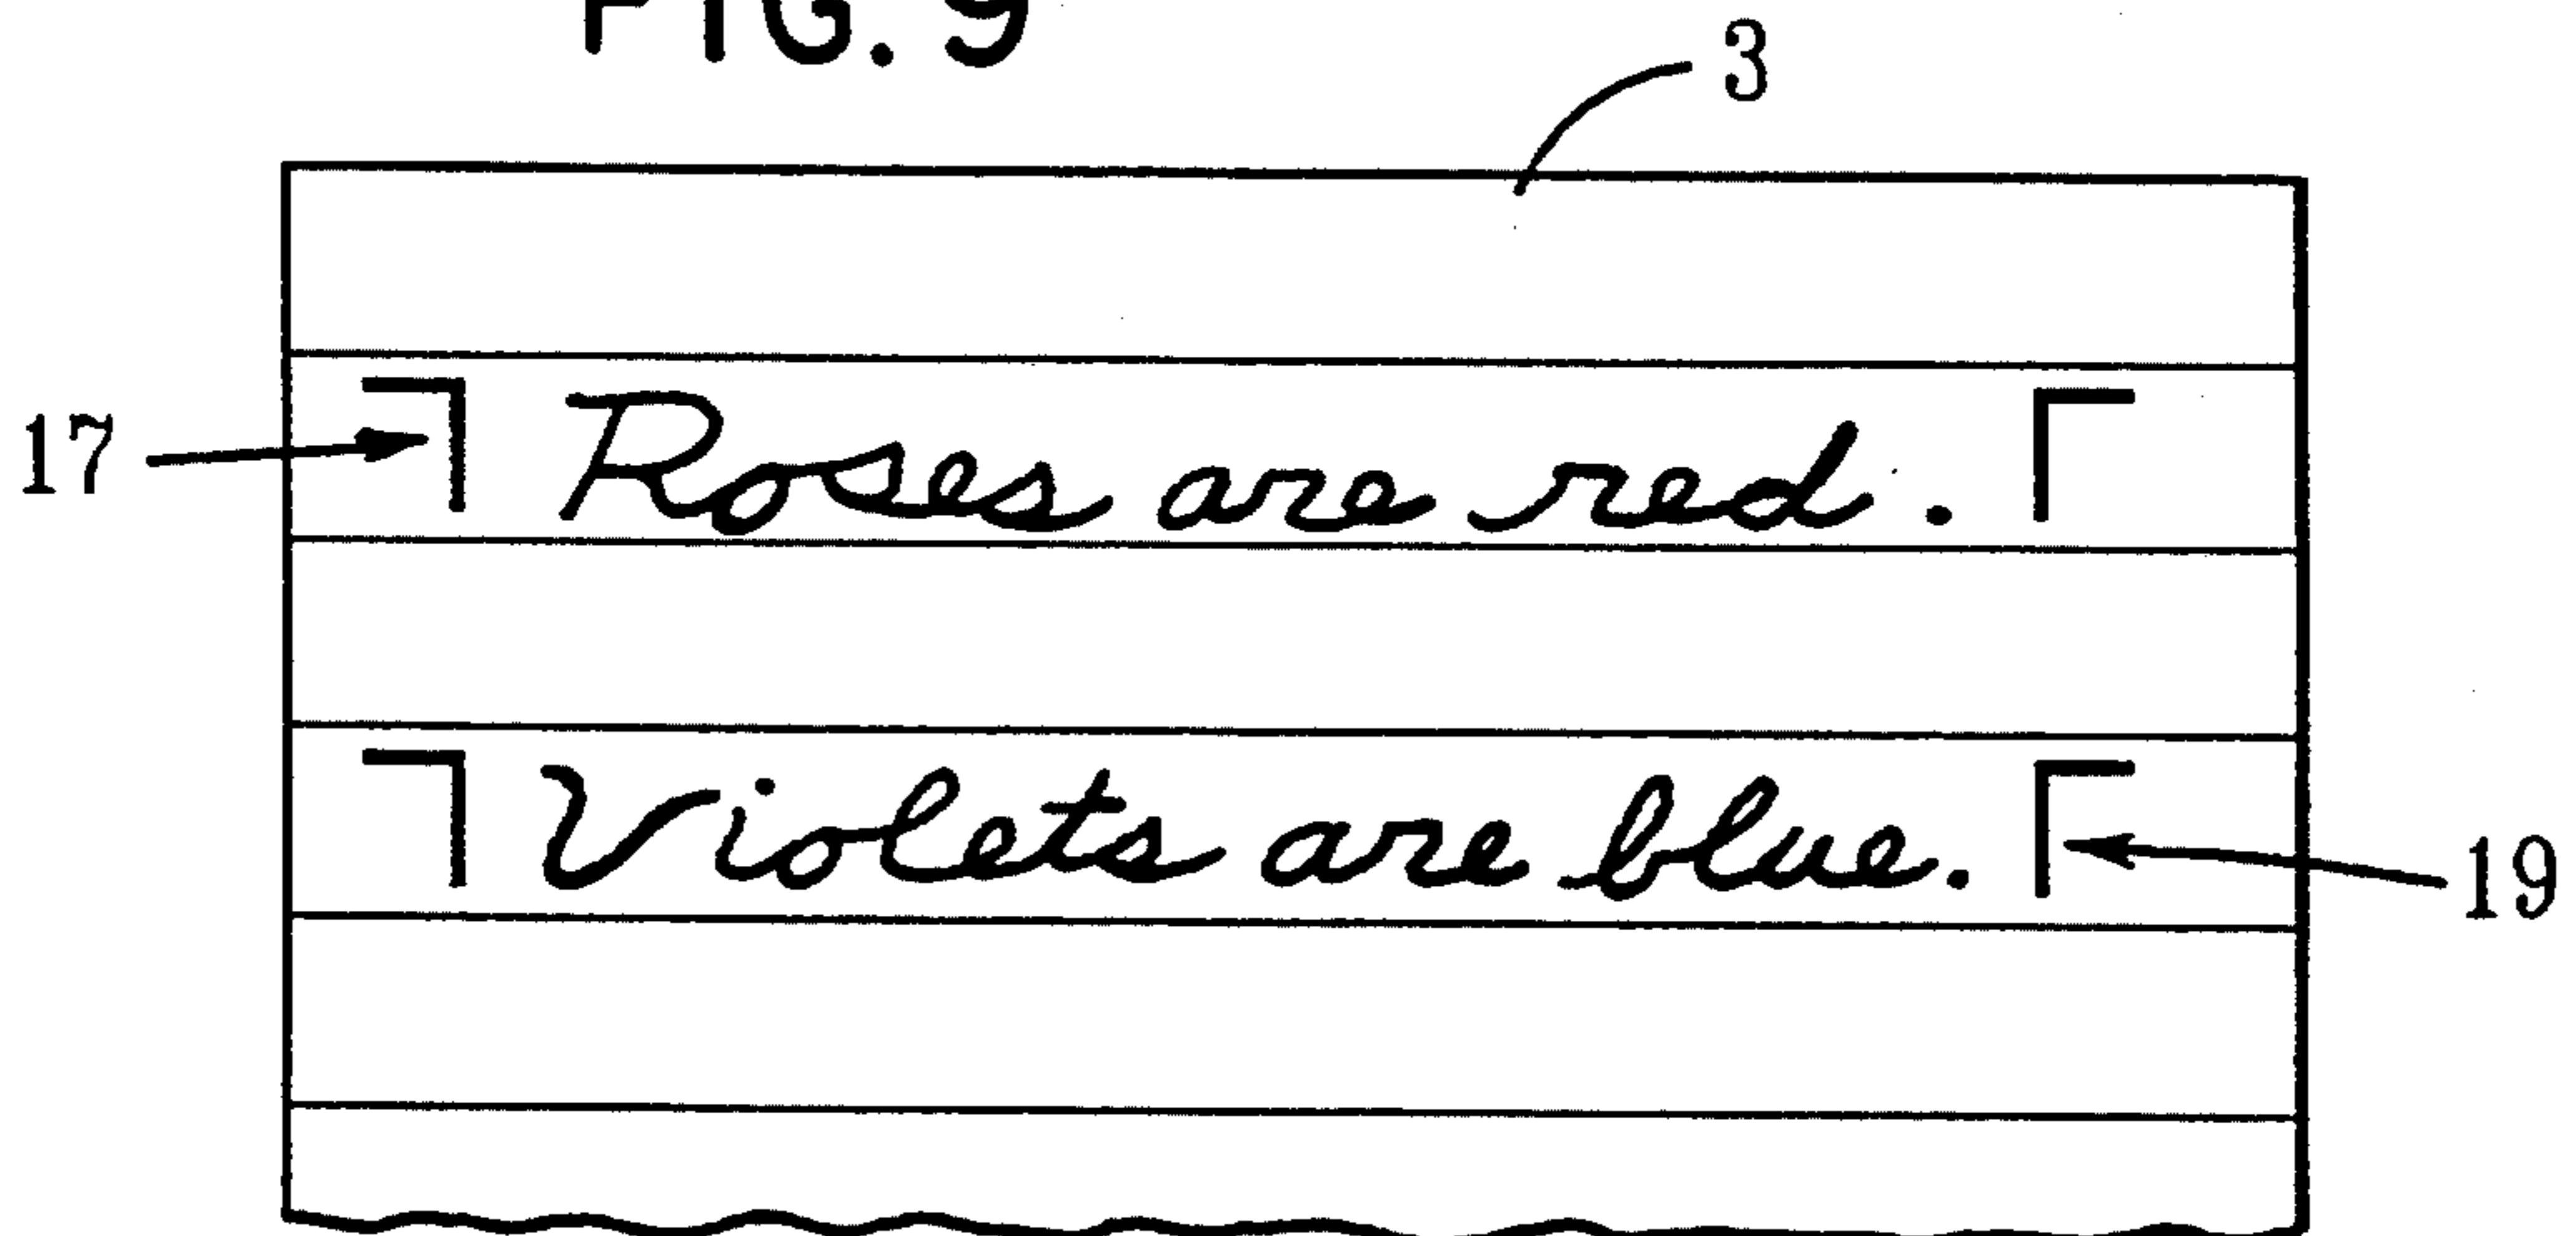 FIG. 9
3
17
Roses are red.
Violets are blue.
19